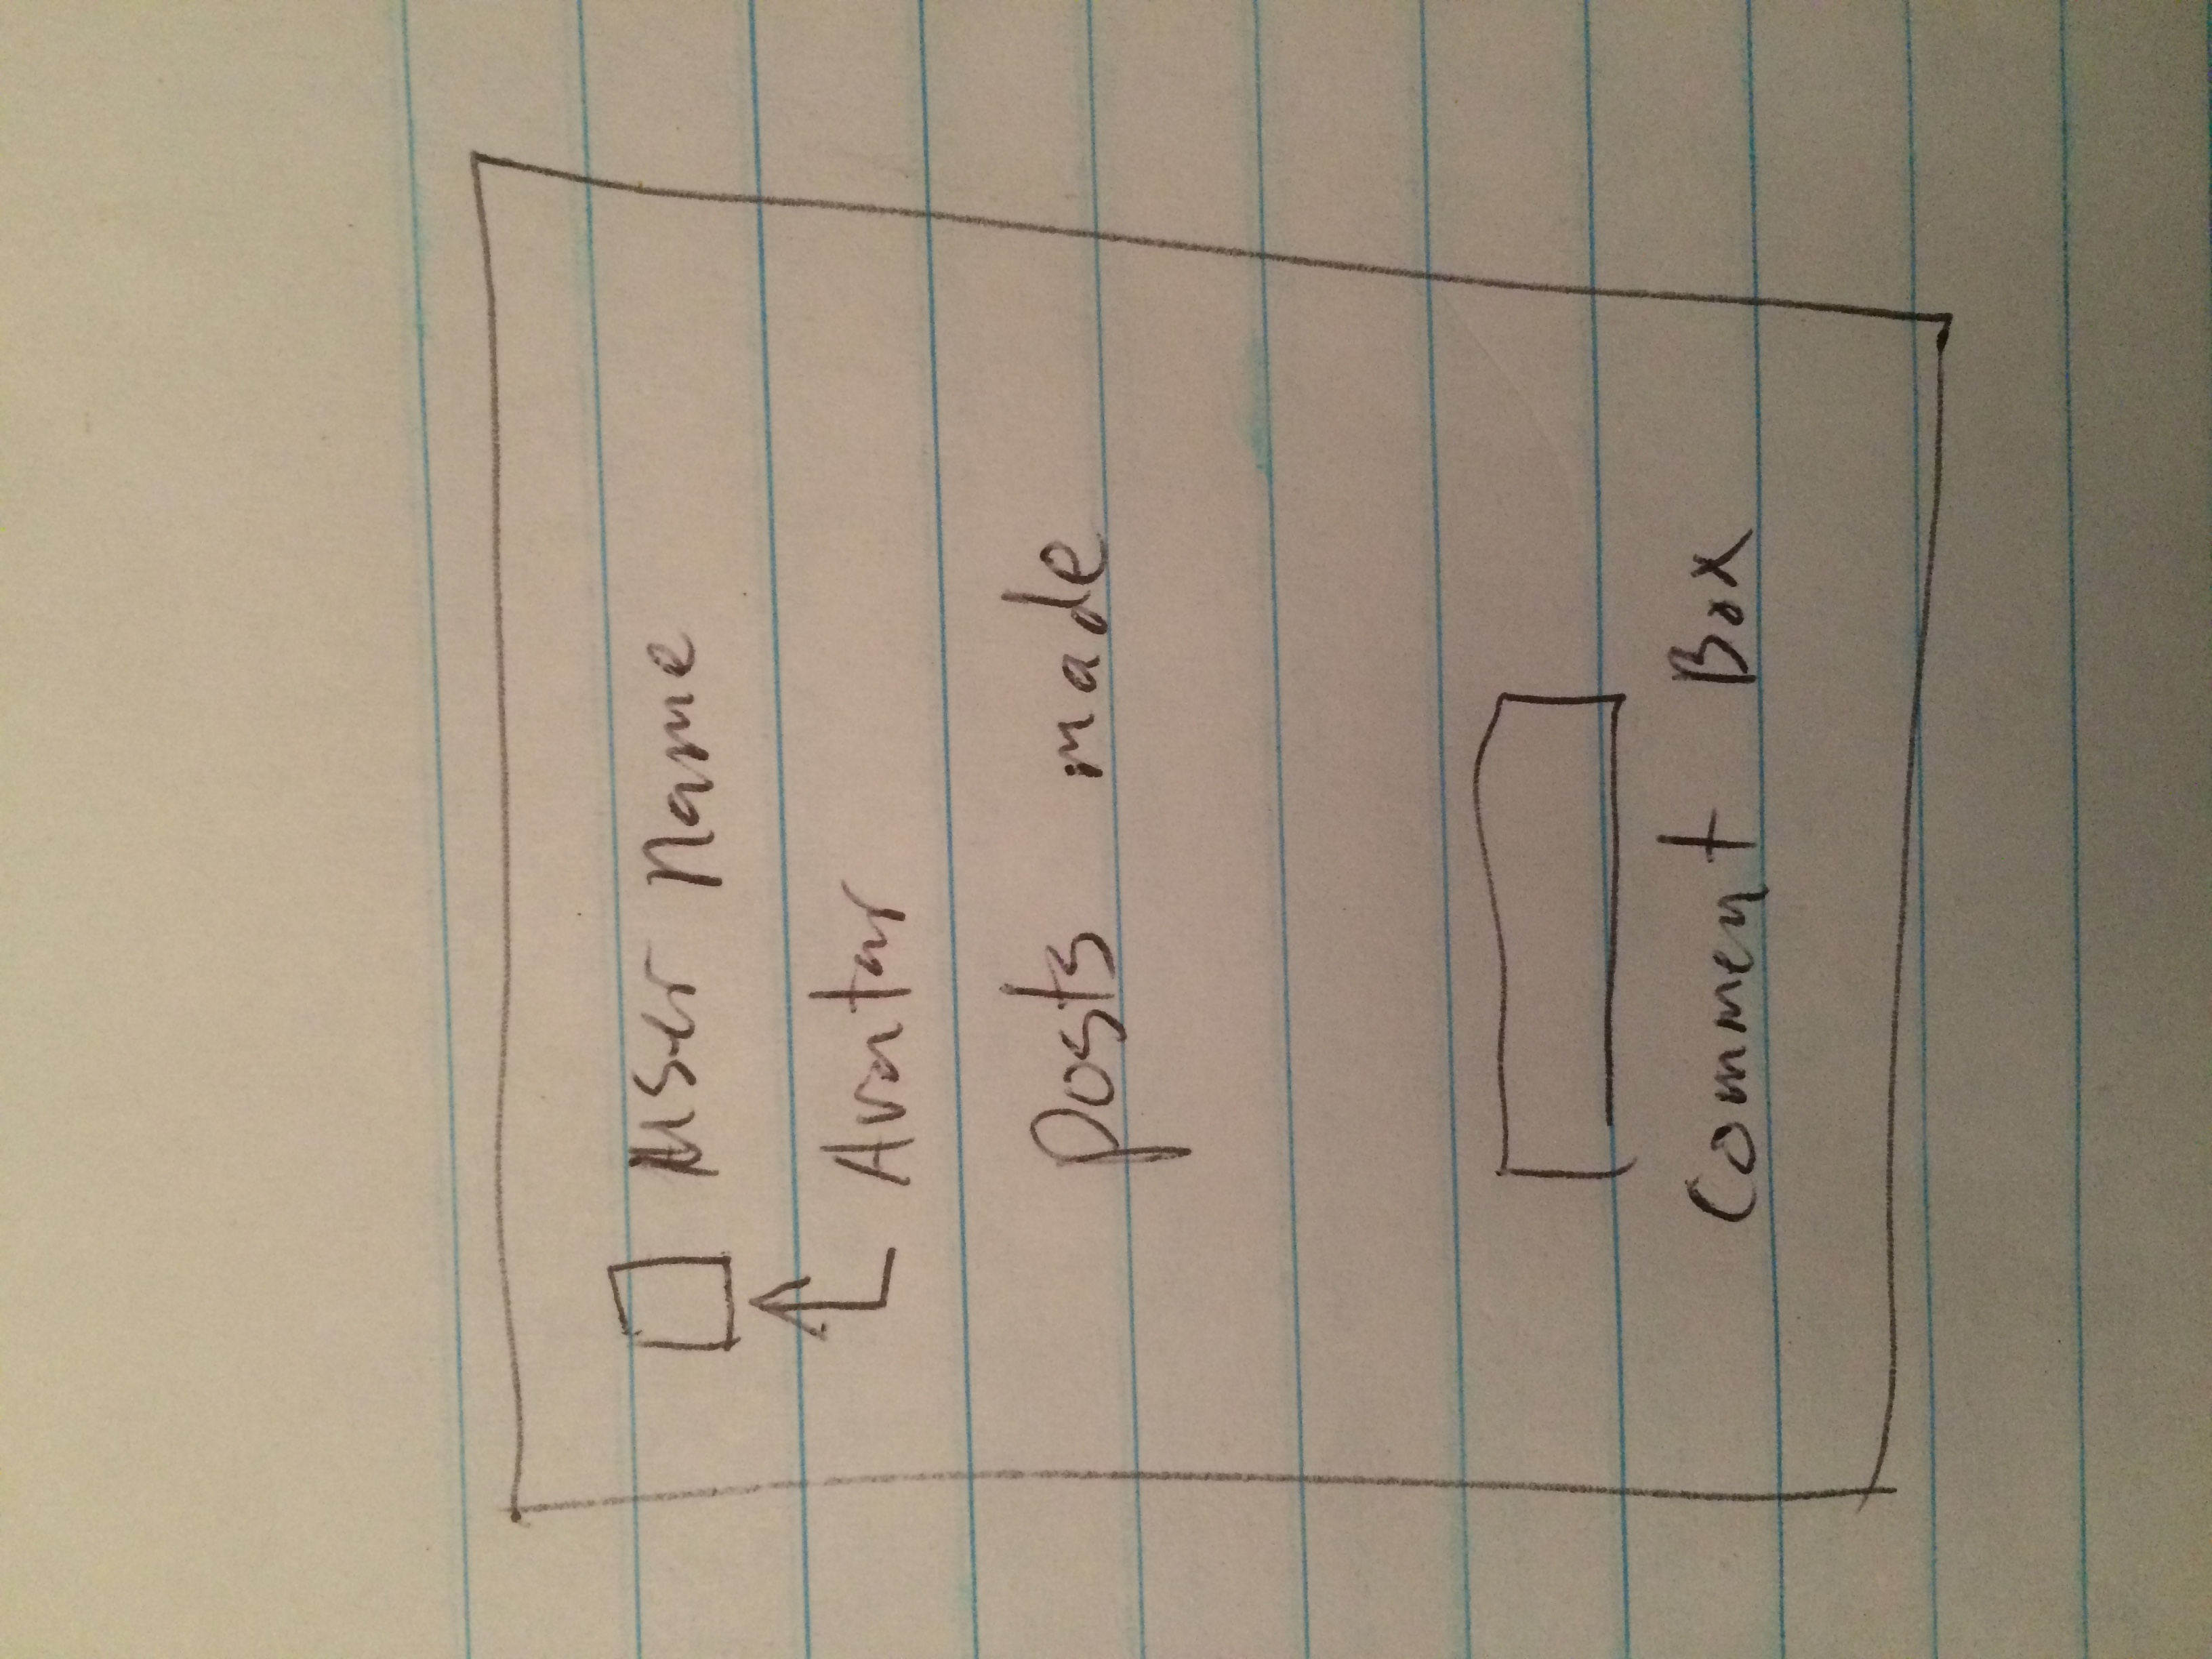 User name
Avatar
posts made
Comment Box